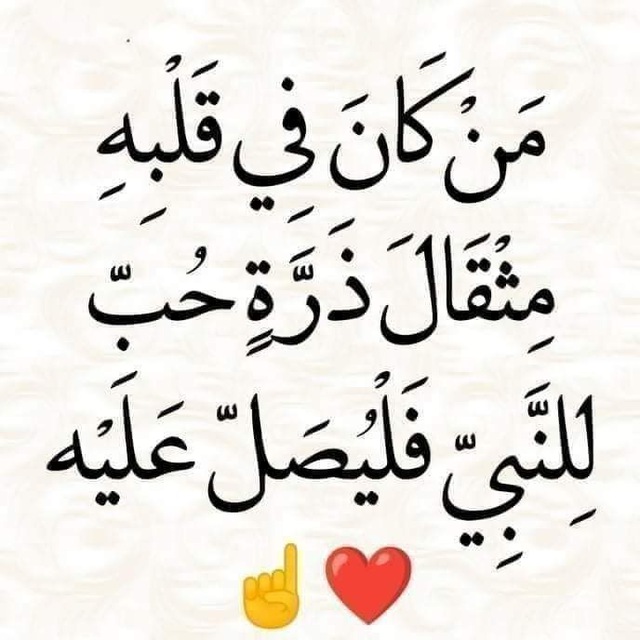 مَنْ كَانَ فِي قَلْبِهِ
مِثْقَالَ ذَرَّةٍ حُبّ
لِلنَّبِيّ فَلْيُصَلّ عَلَيْه
☝️❤️